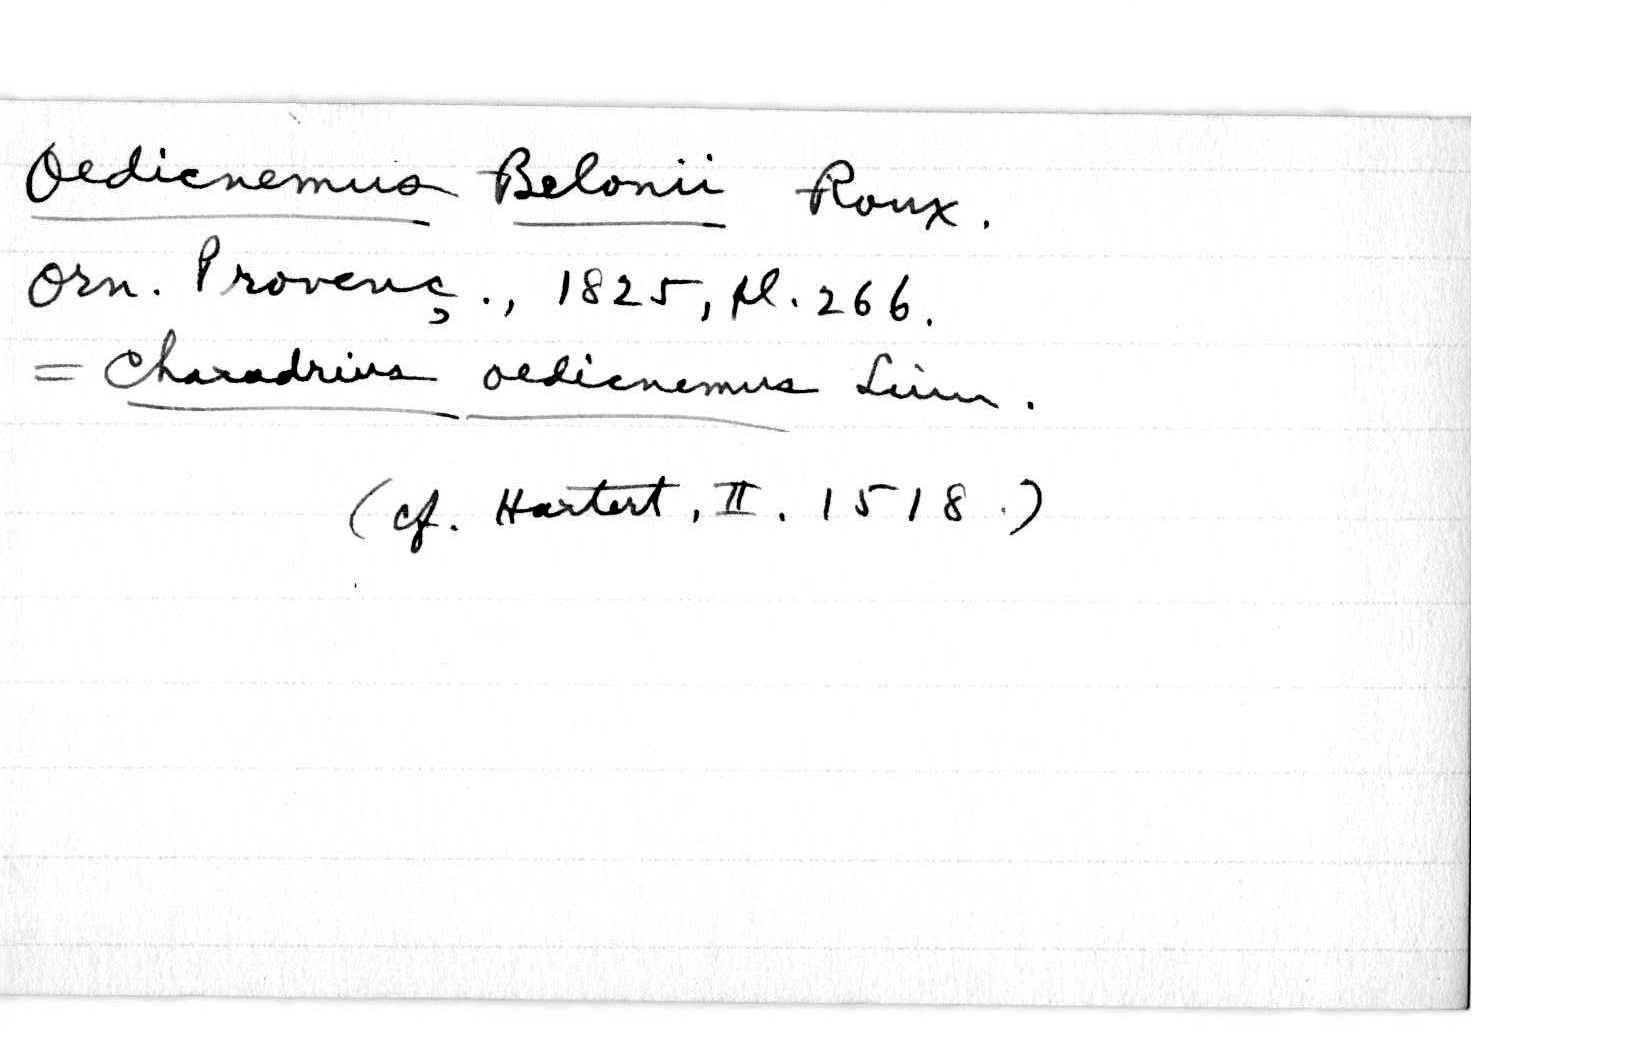 Oedicnemus Belonii Roux.
Orn. Provenç., 1825, pl. 266.
= Charadrius oedicnemus Linn.
(cf. Hartert, II. 1518.)